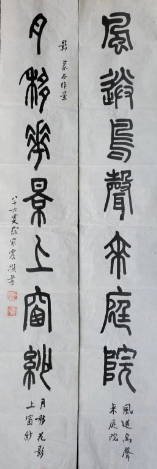 風送鳥聲來庭院
風送鳥聲
來庭院
月移華景上窗紗
月移花影
上窗紗